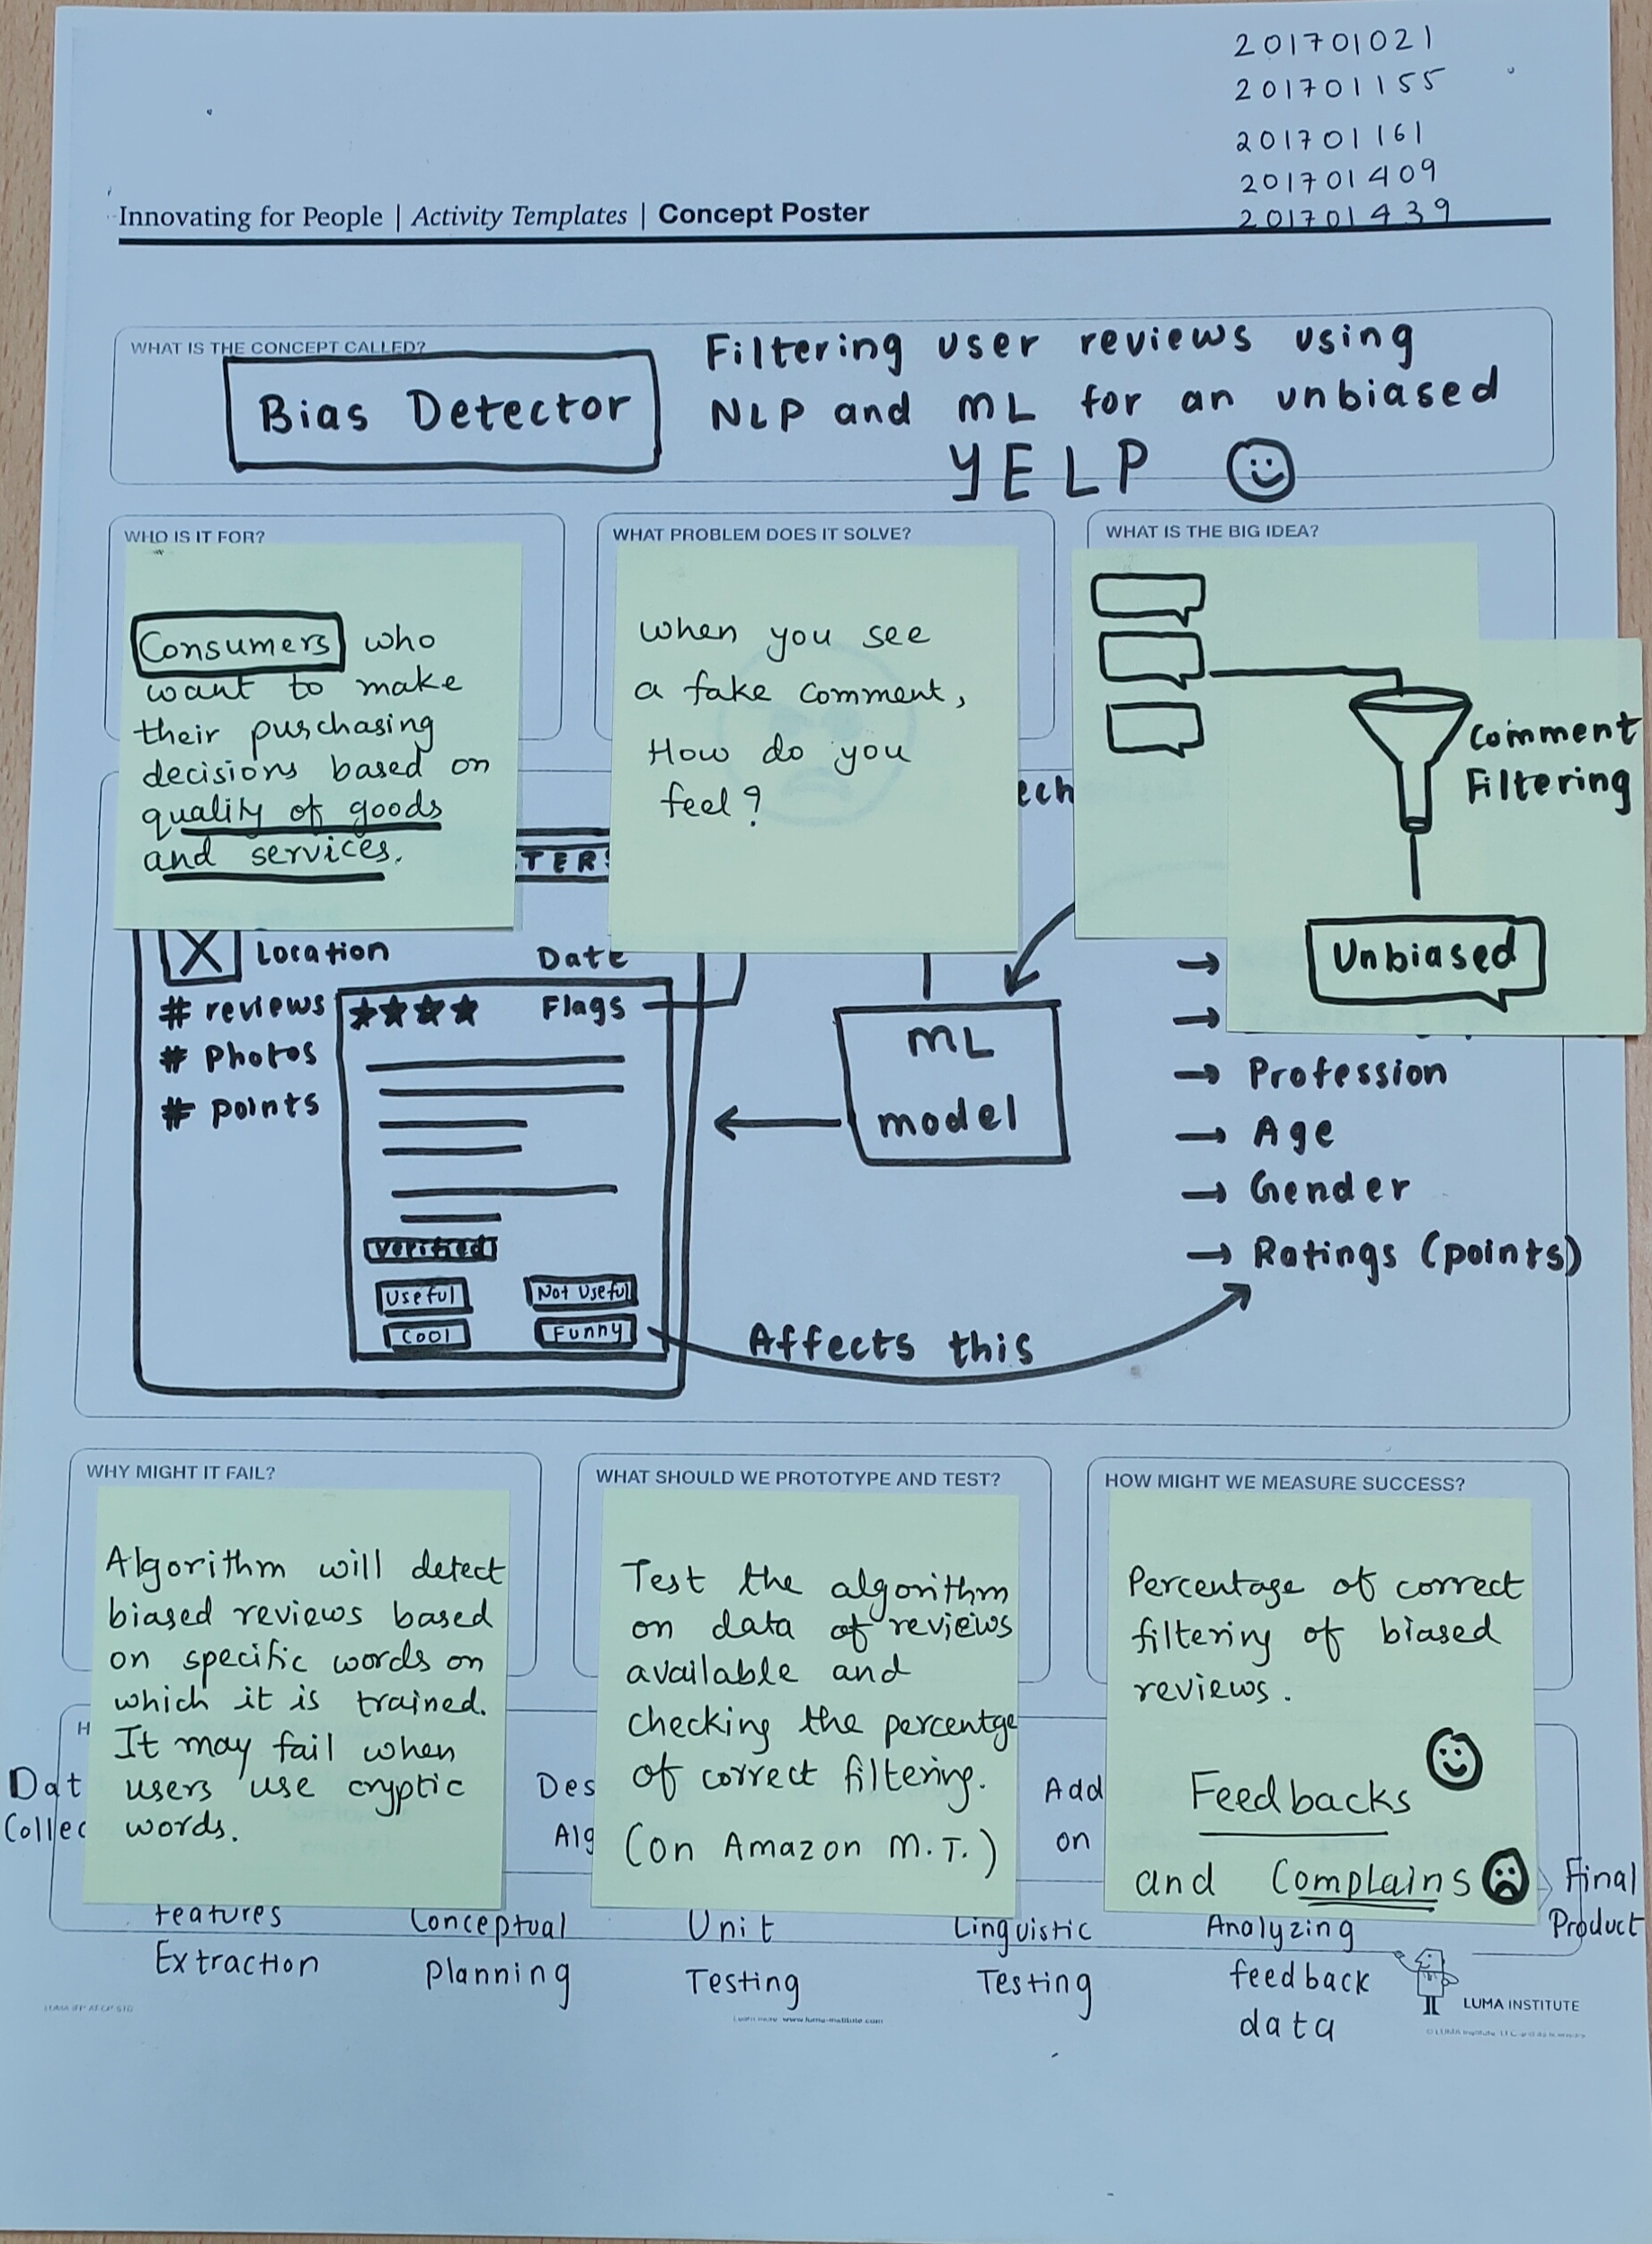 201701021
201701155
201701161
201701409
201701439
Innovating for People | Activity Templates | Concept Poster
WHAT IS THE CONCEPT CALLED?
Bias Detector
Filtering user reviews using
NLP and ML for an unbiased
YELP
WHO IS IT FOR?
Consumers who
want to make
their purchasing
decisions based on
quality of goods
and services.
WHAT PROBLEM DOES IT SOLVE?
When you see
a fake comment,
How do you
feel?
WHAT IS THE BIG IDEA?
Comment
Filtering
Unbiased
Location
Date
# reviews
# Photos
# points
Flags
Verified
Useful
Not Useful
Cool
Funny
ML
model
→ Profession
→ Age
→ Gender
→ Ratings (points)
Affects this
WHY MIGHT IT FAIL?
Algorithm will detect
biased reviews based
on specific words on
which it is trained.
It may fail when
users use cryptic
words.
WHAT SHOULD WE PROTOTYPE AND TEST?
Test the algorithm
on data of reviews
available and
checking the percentge
of correct filtering.
(on Amazon M.T.)
HOW MIGHT WE MEASURE SUCCESS?
Percentage of correct
filtering of biased
reviews.
Feedbacks
and Complains
Dat
Collec
Des
Alg
Add
on
Final
Product
Features
Extraction
Conceptual
planning
Unit
Testing
Linguistic
Testing
Analyzing
feedback
data
LUMA INSTITUTE
Learn more: www.luma-institute.com